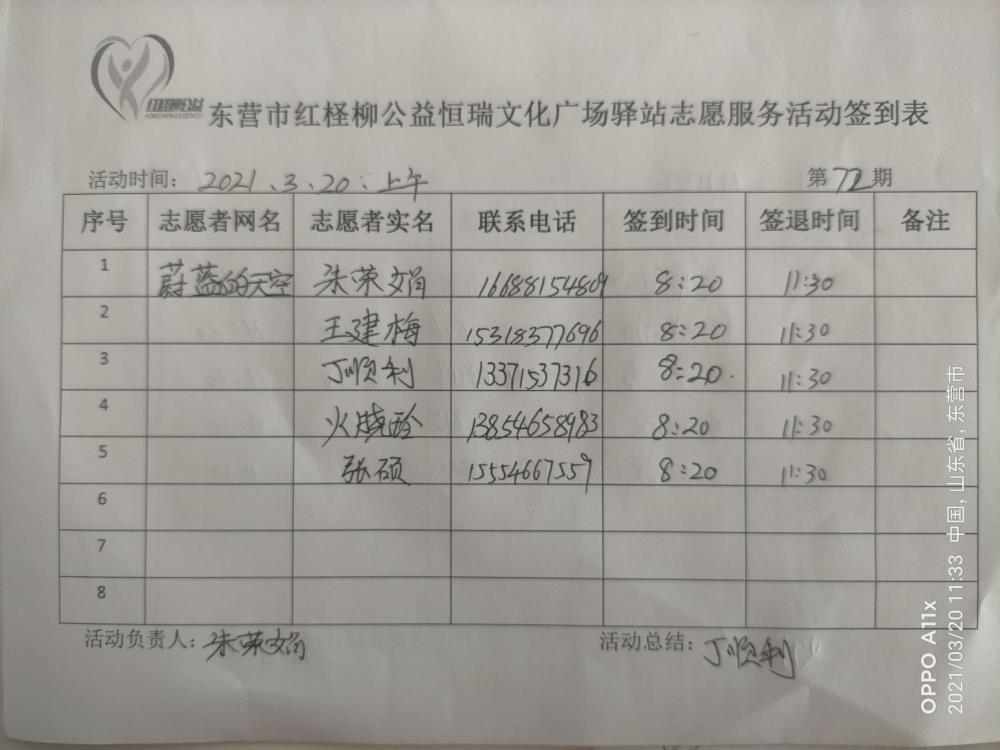 东营市红柽柳公益恒瑞文化广场驿站志愿服务活动签到表
活动时间： 2021.3.20.上午 第72期
序号 志愿者网名 志愿者实名 联系电话 签到时间 签退时间 备注
1 蔚蓝的天空 朱荣娟 16688154809 8:20 11:30
2 王建梅 15318377696 8:20 11:30
3 丁顺利 13371537316 8:20 11:30
4 火晓玲 13854658983 8:20 11:30
5 张硕 15554667557 8:20 11:30
6
7
8
活动负责人：朱荣娟 活动总结：丁顺利
OPPO A11x
2021/03/20 11:33 中国, 山东省, 东营市